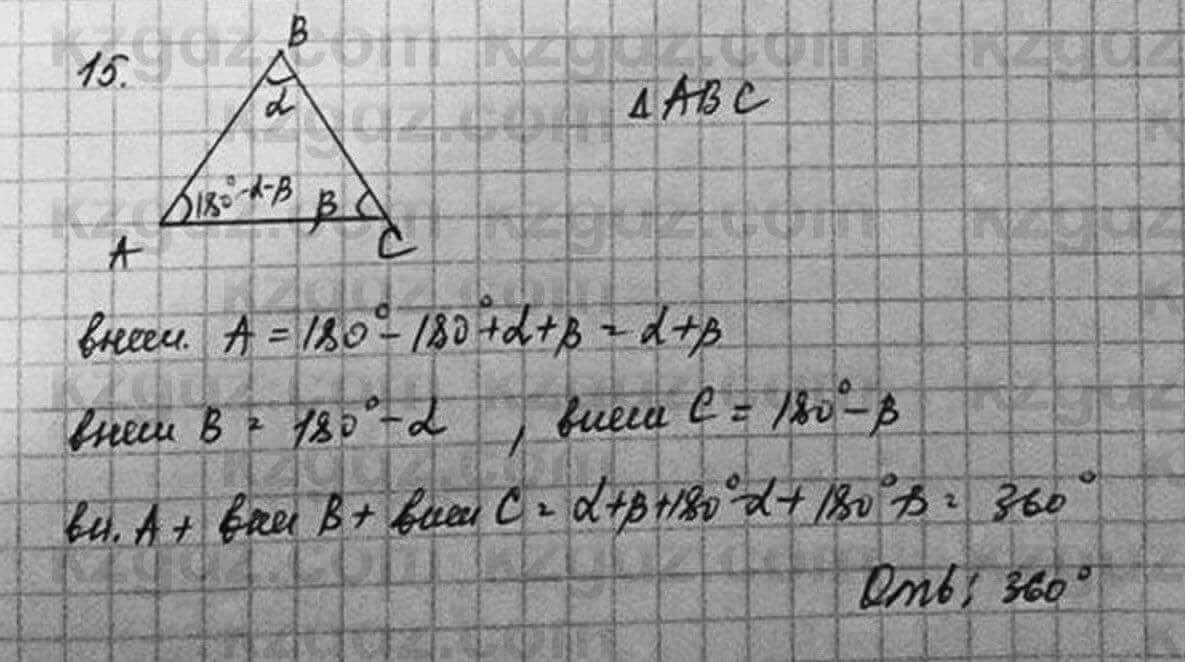 15.
B
α
180°-α-β
β
A
C
△ABC
внеш. A = 180° - 180° + α + β = α + β
внеш B = 180° - α , внеш C = 180° - β
вн. A + внеш B + внеш C = α + β + 180° - α + 180° - β = 360°
Отв: 360°
kzgdz.com